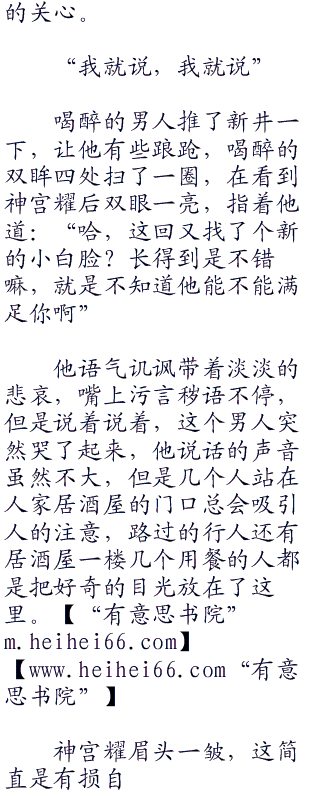 的关心。
“我就说，我就说”
喝醉的男人推了新井一
下，让他有些踉跄，喝醉的
双眸四处扫了一圈，在看到
神宫耀后双眼一亮，指着他
道：“哈，这回又找了个新
的小白脸？长得到是不错
嘛，就是不知道他能不能满
足你啊”
他语气讥讽带着淡淡的
悲哀，嘴上污言秽语不停，
但是说着说着，这个男人突
然哭了起来，他说话的声音
虽然不大，但是几个人站在
人家居酒屋的门口总会吸引
人的注意，路过的行人还有
居酒屋一楼几个用餐的人都
是把好奇的目光放在了这
里。【“有意思书院”
m.heihei66.com】
【www.heihei66.com“有意
思书院”】
神宫耀眉头一皱，这简
直是有损自